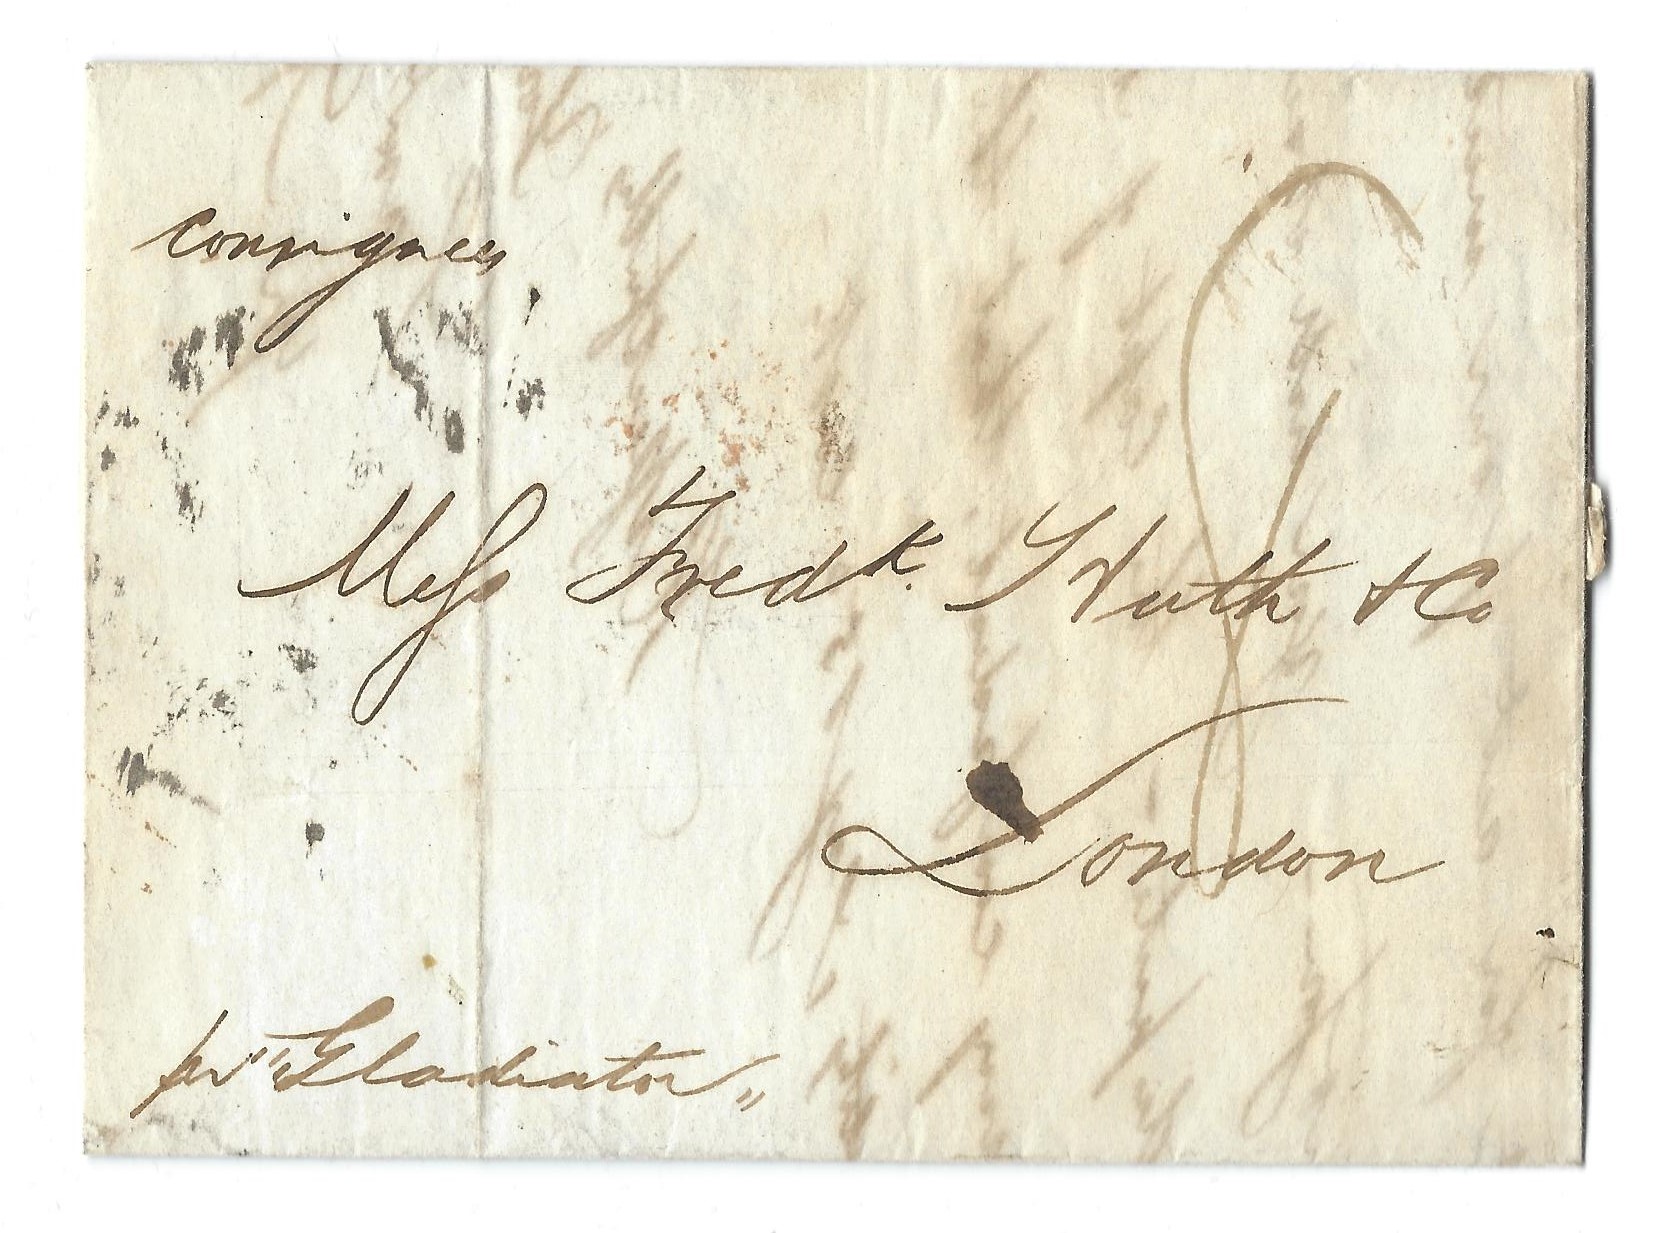 consignees
Mess Fredk. Huth & Co
London
pr "Gladiator"